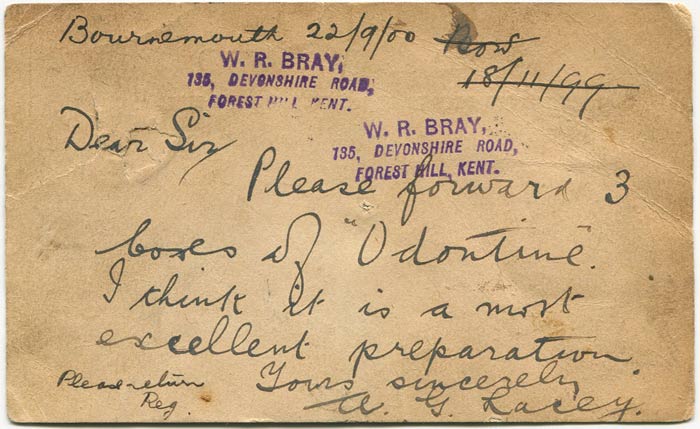 Bournemouth 22/9/00
18/11/99
W. R. BRAY,
135, DEVONSHIRE ROAD,
FOREST HILL, KENT.
W. R. BRAY,
135, DEVONSHIRE ROAD,
FOREST HILL, KENT.
Dear Sir
Please forward 3
boxes of "Odontine".
I think it is a most
excellent preparation.
Yours sincerely,
G. Lacey.
Please return
Reg.